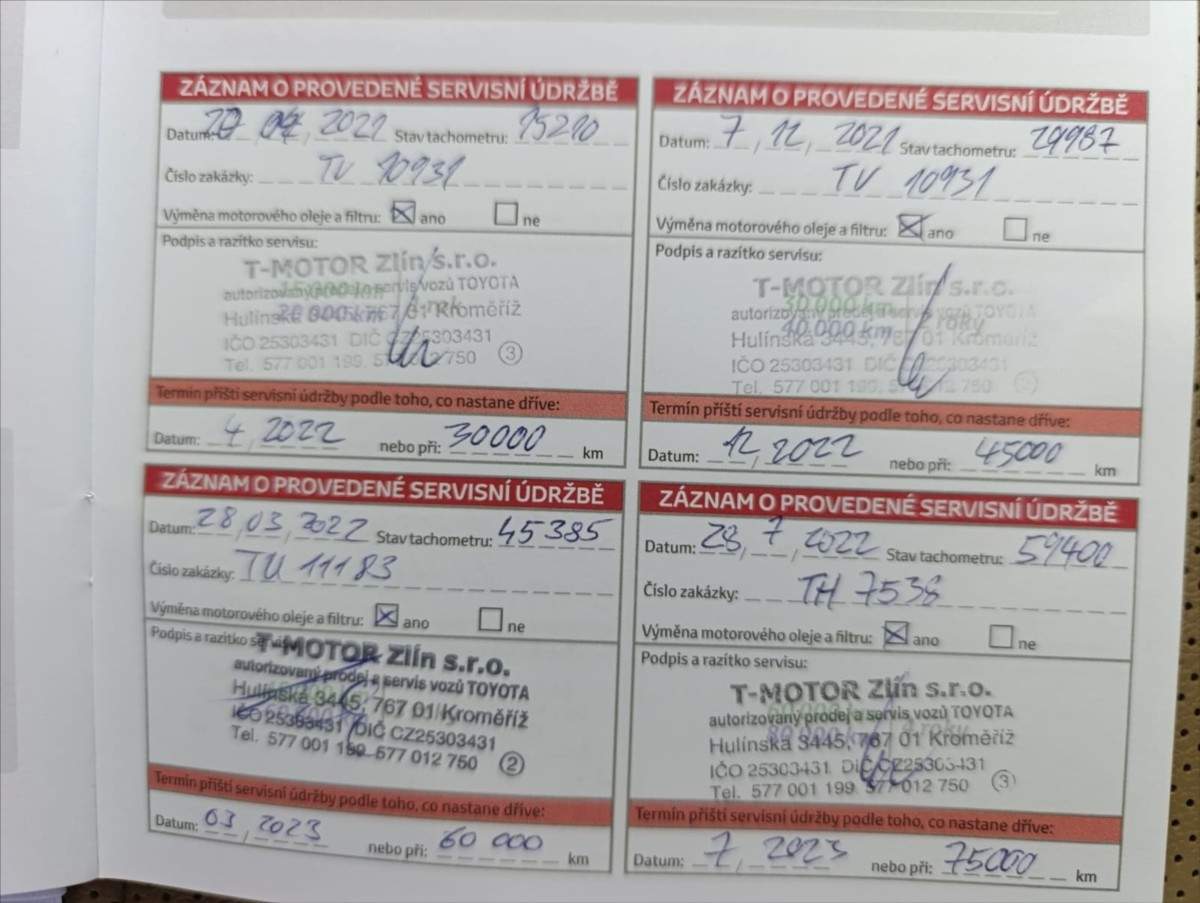 ZÁZNAM O PROVEDENÉ SERVISNÍ ÚDRŽBĚ
Datum: 2021 Stav tachometru: 15210
Číslo zakázky: TV 10931
Výměna motorového oleje a filtru: ano ne
Podpis a razítko servisu:
T-MOTOR Zlín s.r.o.
autorizovaný servis vozů TOYOTA
Hulínská 767 01 Kroměříž
IČO 25303431 DIČ CZ25303431
Tel. 577 001 199 750 3
Termín příští servisní údržby podle toho, co nastane dříve:
Datum: 4, 2022 nebo při: 30000 km
ZÁZNAM O PROVEDENÉ SERVISNÍ ÚDRŽBĚ
Datum: 7, 12, 2021 Stav tachometru: 29987
Číslo zakázky: TV 10931
Výměna motorového oleje a filtru: ano ne
Podpis a razítko servisu:
T-MOTOR Zlín s.r.o.
autorizovaný prodej a servis vozů TOYOTA
30.000 km
40.000 km
Hulínská 3445, 767 01 Kroměříž
IČO 25303431 DIČ CZ25303431
Tel. 577 001 199, 750
Termín příští servisní údržby podle toho, co nastane dříve:
Datum: 12, 2022 nebo při: 45000 km
ZÁZNAM O PROVEDENÉ SERVISNÍ ÚDRŽBĚ
Datum: 28, 03, 2022 Stav tachometru: 45385
Číslo zakázky: TU 11183
Výměna motorového oleje a filtru: ano ne
Podpis a razítko
T-MOTOR Zlín s.r.o.
autorizovaný prodej a servis vozů TOYOTA
Hulínská 3445, 767 01 Kroměříž
IČO 25303431 DIČ CZ25303431
Tel. 577 001 199 577 012 750 2
Termín příští servisní údržby podle toho, co nastane dříve:
Datum: 03, 2023 nebo při: 60 000 km
ZÁZNAM O PROVEDENÉ SERVISNÍ ÚDRŽBĚ
Datum: 28, 7, 2022 Stav tachometru: 59400
Číslo zakázky: TH 7538
Výměna motorového oleje a filtru: ano ne
Podpis a razítko servisu:
T-MOTOR Zlín s.r.o.
autorizovaný prodej a servis vozů TOYOTA
Hulínská 3445, 767 01 Kroměříž
IČO 25303431 DIČ CZ25303431
Tel. 577 001 199 577 012 750 3
Termín příští servisní údržby podle toho, co nastane dříve:
Datum: 7, 2023 nebo při: 75000 km